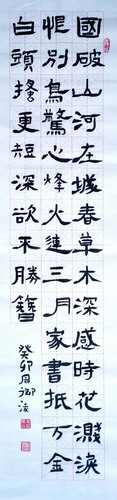 國破山河在城春草木深感時花濺淚
恨別鳥驚心烽火連三月家書抵万金
白頭搔更短深欲不勝簪
癸卯